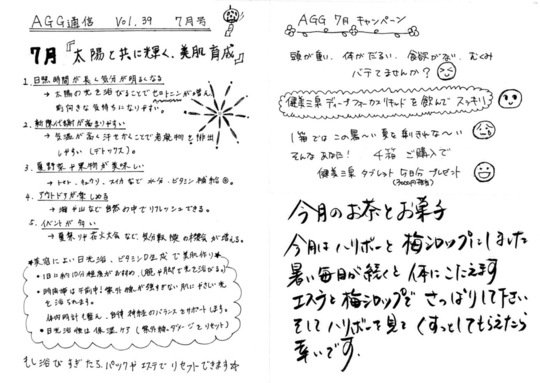 AGG通信 Vol.39 7月号
7月『太陽と共に輝く、美肌育成』
1. 日照時間が長く気分が明るくなる
→ 太陽の光を浴びることでセロトニンが増え
前向きな気持ちになりやすい。
2. 新陳代謝が高まりやすい
→ 気温が高く汗をかくことで老廃物を排出
しやすい(デトックス)。
3. 夏野菜や果物が美味しい
→ トマト、キュウリ、スイカなどで水分・ビタミン補給
4. アウトドアが楽しめる
→ 海や山など自然の中でリフレッシュできる。
5. イベントが多い
→ 夏祭りや花火大会など、気分転換の機会が増える。
*美容によい日光浴、ビタミンD生成で美肌作り*
• 1日に約10分程度がおすすめ(腕や脚で光を浴びる)
• 時間帯は午前中!紫外線が強すぎない肌にやさしい光
を浴びられます。
体内時計も整え、自律神経のバランスをサポートします。
• 日光浴後は保湿ケア(紫外線ダメージをリセット)
もし浴びすぎたら、パックやエステでリセットできます☆
AGG 7月キャンペーン
頭が重い、体がだるい、食欲がない、むくみ
バテてませんか?
健美三泉ディーナフォーカスリキッドを飲んでスッキリ
1箱ではこの暑〜い夏を乗りきれな〜い
そんなあなた! 4箱ご購入で
健美三泉タブレット5日分プレゼント
今月のお茶とお菓子
今月はハリボーと梅シロップにしました
暑い毎日が続くと体にこたえます
エステと梅シロップで さっぱりして下さい
そしてハリボーを見て くすっとしてもらえたら
幸いです.